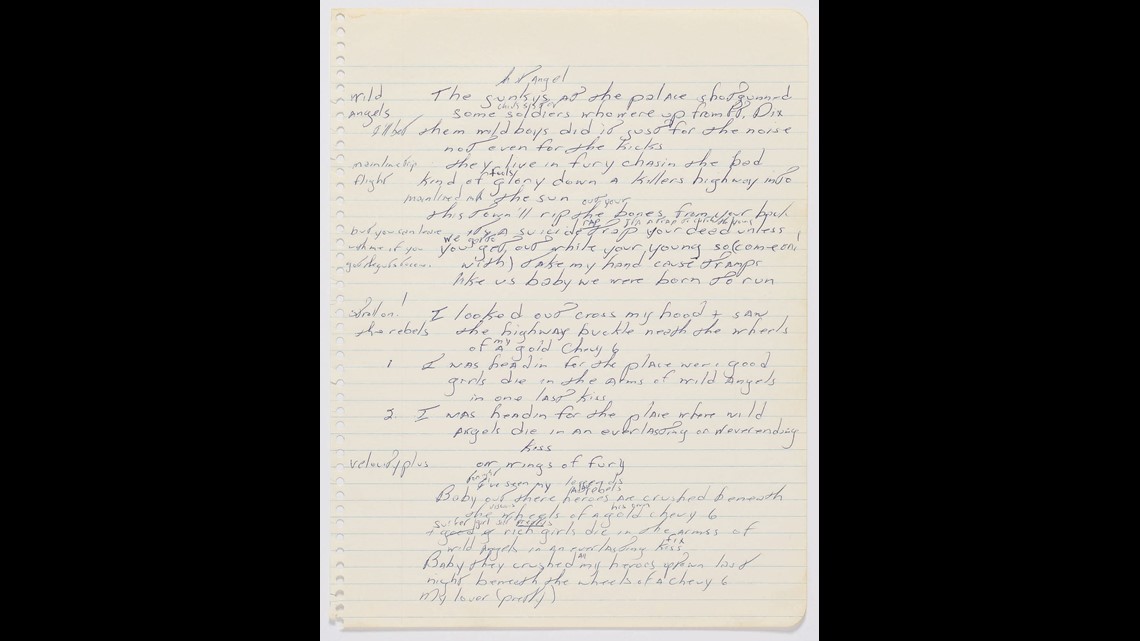 Angel
Wild The gunksys at the palace shotgunned
Angels some soldiers who were up from Ft. Dix
them wild boys did it just for the noise
not even for the kicks
they live in fury chasin the bad
flight kind of glory down a killers highway into
mainlined the sun out your
this town'll rip the bones from your back
but you can leave its a suicide trap your dead unless
with me if you we got to you get out while your young so (come on
with) take my hand cause tramps
like us baby we were born to run
I looked out cross my hood + saw
the rebels the highway buckle neath the wheels
of a my gold Chevy 6
1. I was headin for the place were good
girls die in the arms of wild Angels
in one last kiss
2. I was headin for the place where wild
Angels die in an everlasting or neverending
kiss
velocity plus on wings of fury
I've seen my legends
rebels
Baby out there heroes are crushed beneath
his gun
the wheels of a gold chevy 6
good rich girls die in the arms of
fix
wild Angels in an everlasting kiss
all
Baby they crushed my heroes down last
night beneath the wheels of a Chevy 6
My lover (pretty)